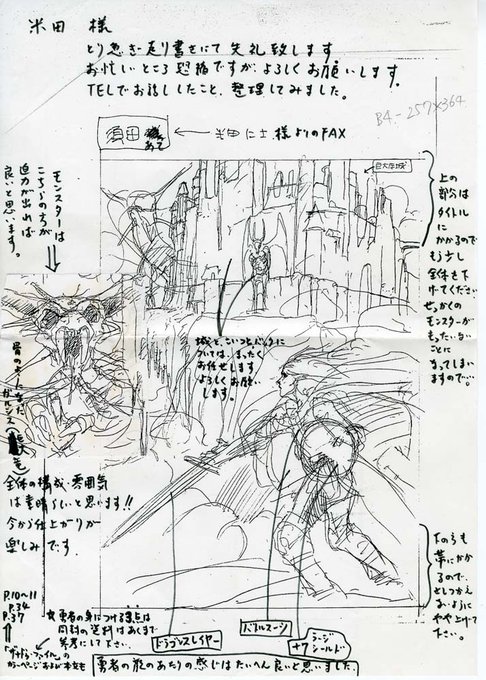 米田 様
とり急ぎ走り書きにて失礼致します
お忙しいところ恐縮ですが、よろしくお願いします。
TELでお話ししたこと、整理してみました。
B4-257×364
須田 あて
米田仁士様よりのFAX
巨大な城
上の
部分は
タイトル
に
かかるので
もう少し
全体を下
げてください
せっかくの
モンスターが
もったいない
ことに
なってしまい
ますので。
モンスターは
こちらのほうが
迫力が出れば
良いと思います。
城と、こいつとバックに
ついては、まったく
お任せします
よろしくお願い
します。
全体の構成、雰囲気
は素晴らしいと思います!!
今から仕上がりが
楽しみです。
下のほうも
帯にかか
るので、
さしつかえ
ないように
やや上げて
下さい。
P.10〜11
P.34
P.37
勇者の身につける
同封の資料はあくまで
参考にして下さい。
カラーページおよび本文も
ドラゴンスレイヤー
バトルスーツ
ラージ
シールド
+7
勇者の髪のあたりの感じはたいへん良いと思いました。